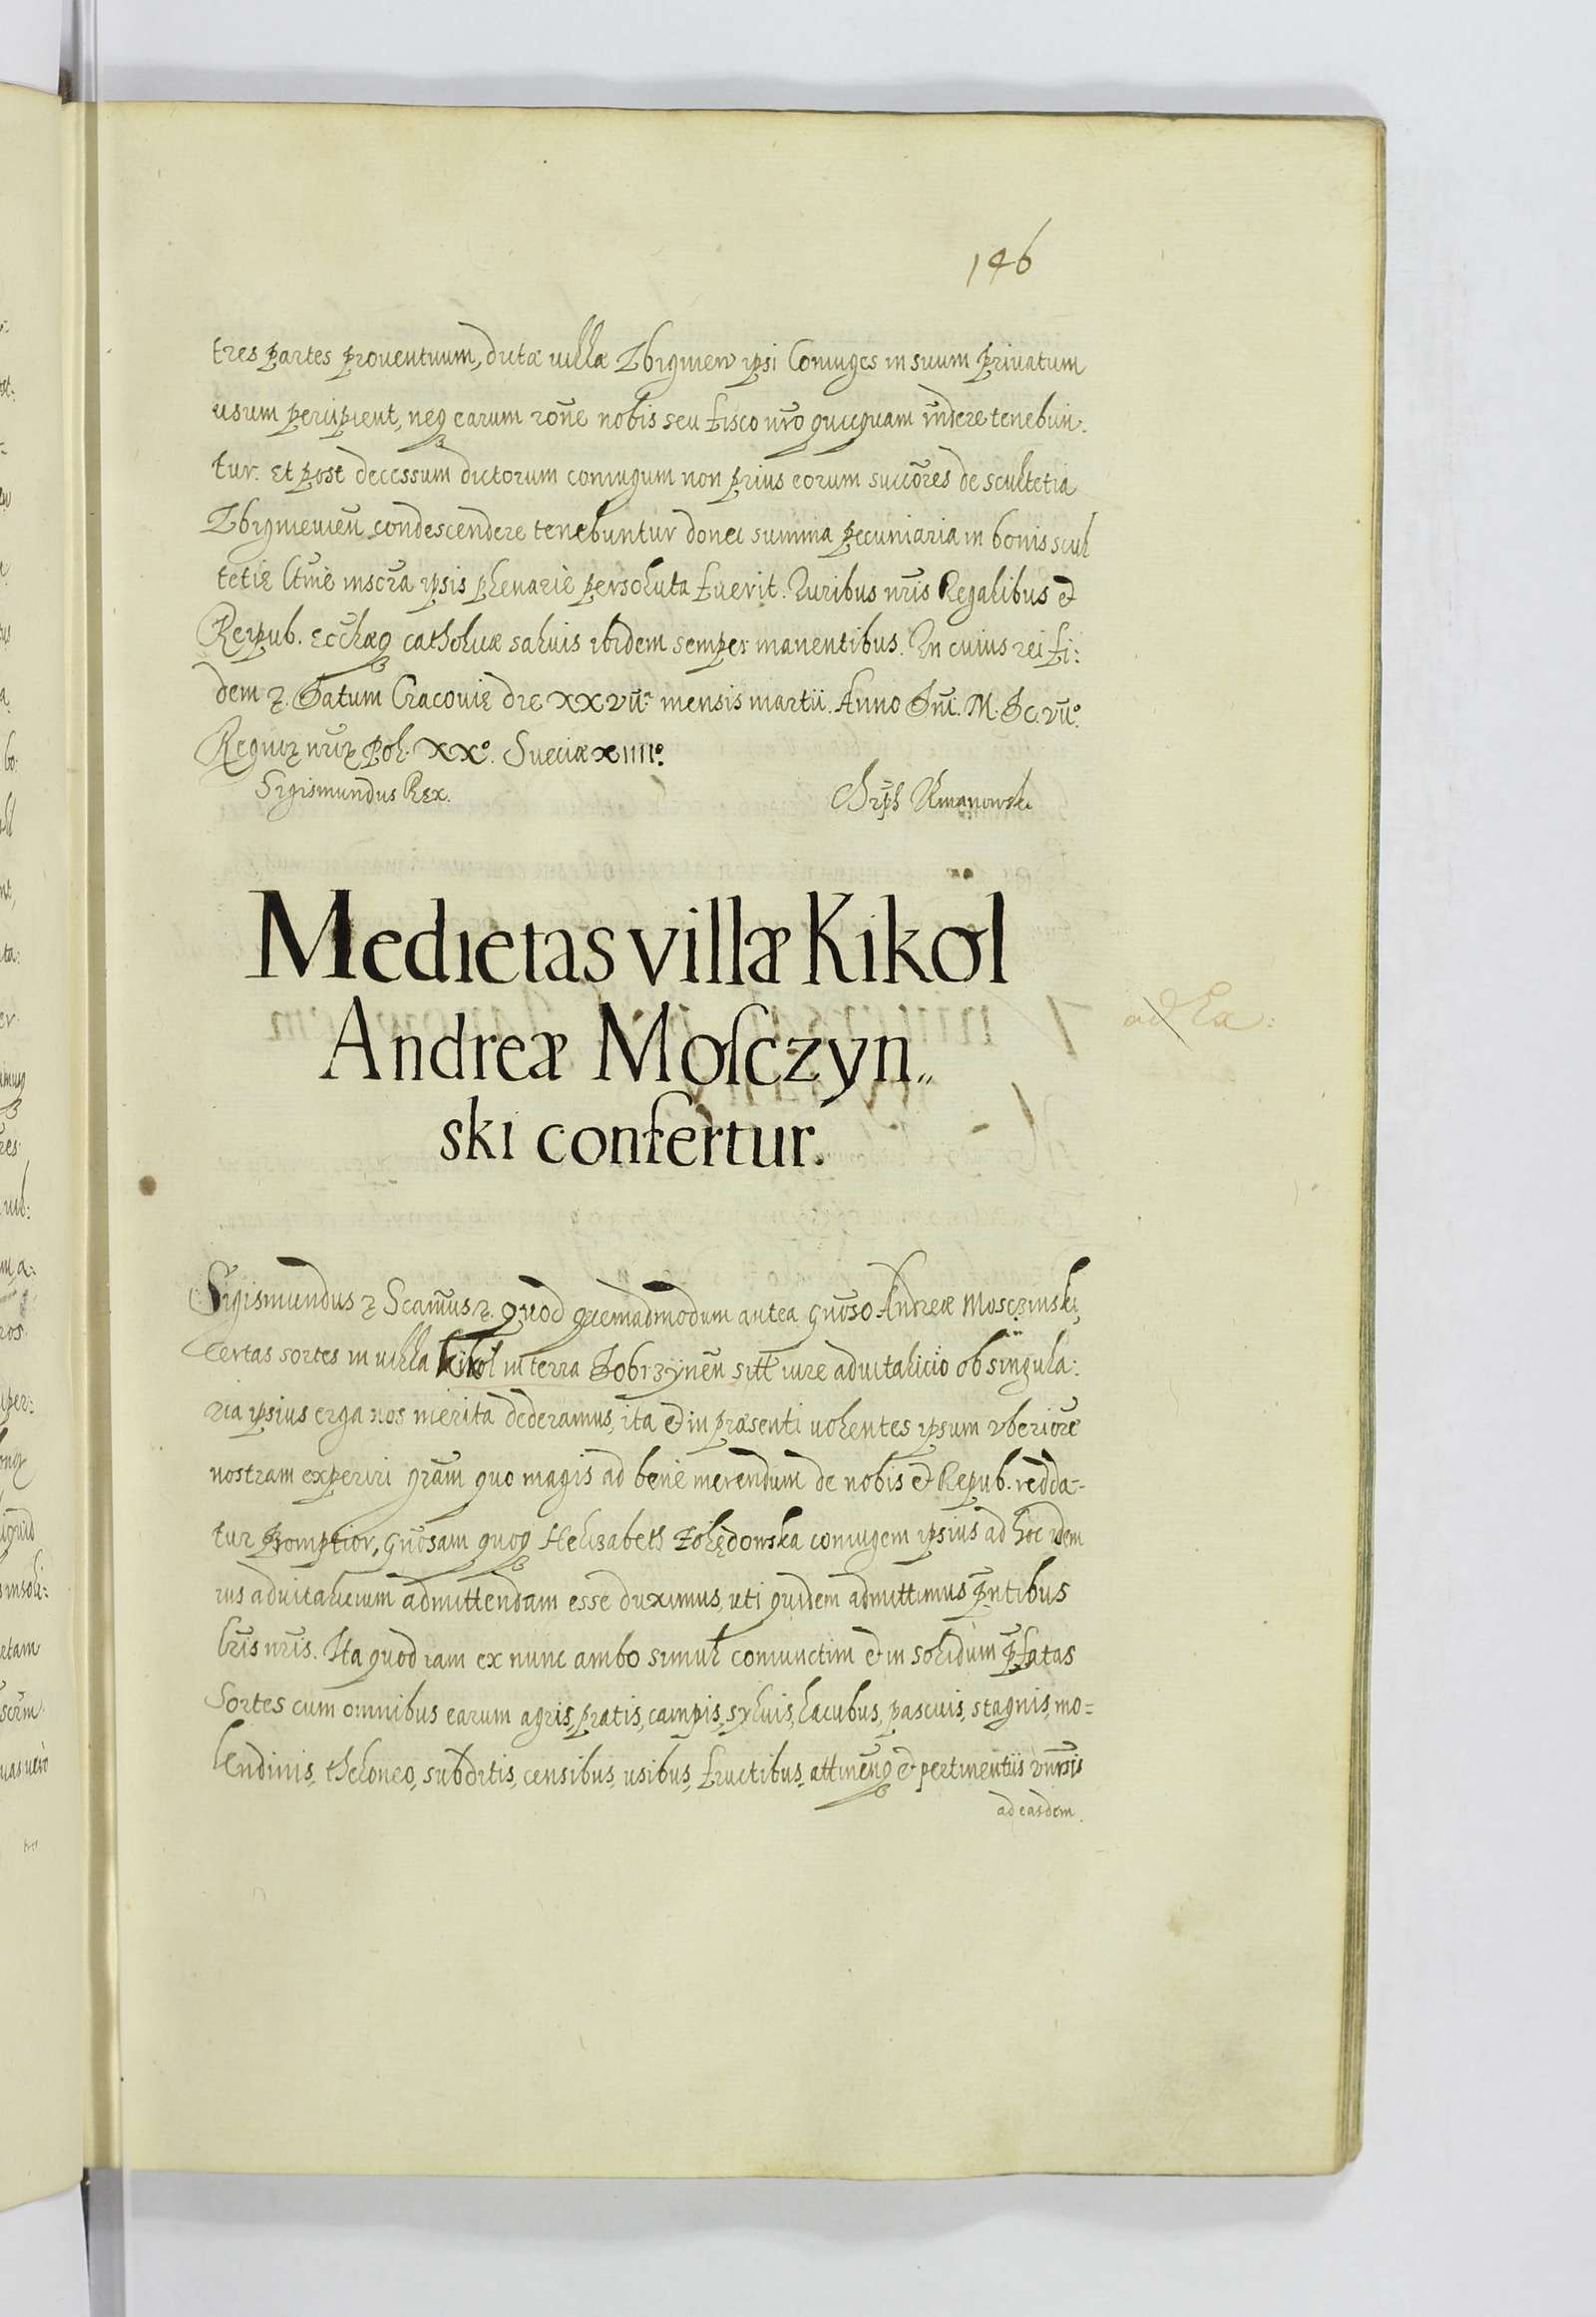 146
tres partes prouentuum, dictæ uillæ Zbigniew ipsi Coniuges in suum priuatum
usum percipient, neq earum rōne nobis seu fisco nr̄o quicquam rn̄dere tenebun-
tur. Et post decessum dictorum coniugum non prius eorum succōres de scultetia
Zbignieuieñ condescendere tenebuntur donec summa pecuniaria in bonis scul
tetię ltīmè inscrā ipsis plenariè persoluta fuerit. Iuribus nr̄is Regalibus et
Reipub. Eccl̄iæq catholicæ saluis ibidem semper manentibus. In cuius rei fi:
dem ꝛ. Datum Cracouię die XXVII. mensis martii. Anno Dn̄i. M. Dc. VII°.
Regnoꝝ nr̄oꝝ Pol. XX°. Sueciæ XIIII°.
Sigismundus Rex.
Chrīph Kmanowski
Medietas villæ Kikol
Andreæ Mosczyn„
ski confertur.
ad Ea:
Sigismundus ꝛ Scamūs ꝛ. quod quemadmodum antea gn̄oso Andreæ Mosczinski,
Certas sortes in uilla Kikol in terra Dobrzyneñ sitt̄ iure aduitalicio ob singula:
ria ipsius erga nos merita dederamus, ita et in præsenti uolentes ipsum vberiorē
nostram experiri grām quo magis ad bene merendum de nobis et Repub. redda-
tur promptior, gn̄osam quoq Helizabeth Zolędowska coniugem ipsius ad hoc idem
ius aduitalicium admittendam esse duximus, uti quidem admittimus pn̄tibus
lr̄is nr̄is. Ita quod iam ex nunc ambo simul coniunctim et in solidum p̄fatas
Sortes cum omnibus earum agris, pratis, campis, syluis, lacubus, pascuis, stagnis, mo=
lendinis, theloneo, subditis, censibus, usibus, fructibus, attineñq et pertinentiis vnīrsis
ad easdem.